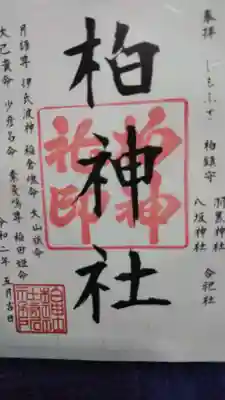 奉拝 しもふさ 柏鎮守 羽黒神社 合祀社
八坂神社
柏神社
柏神社印
月読尊 伊氏波神 稲倉魂命 大山祇命
大己貴命 少彦名命 素戔嗚尊 稲田姫命
令和二年 五月吉日